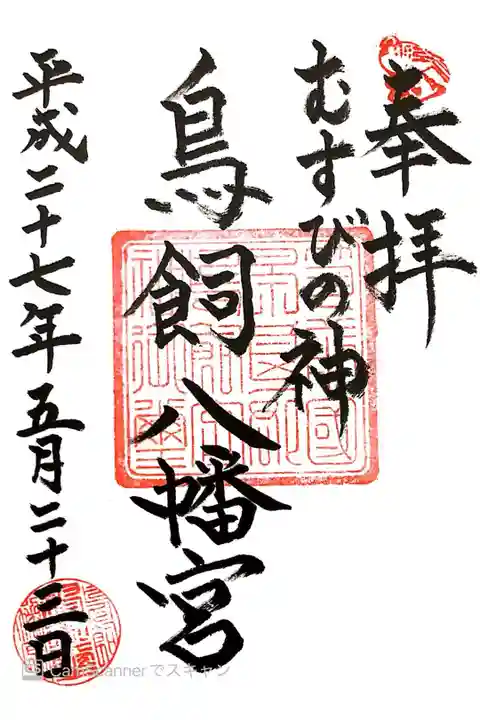 奉拝
むすびの神
鳥飼八幡宮
平成二十七年五月二十三日
CamScannerでスキャン